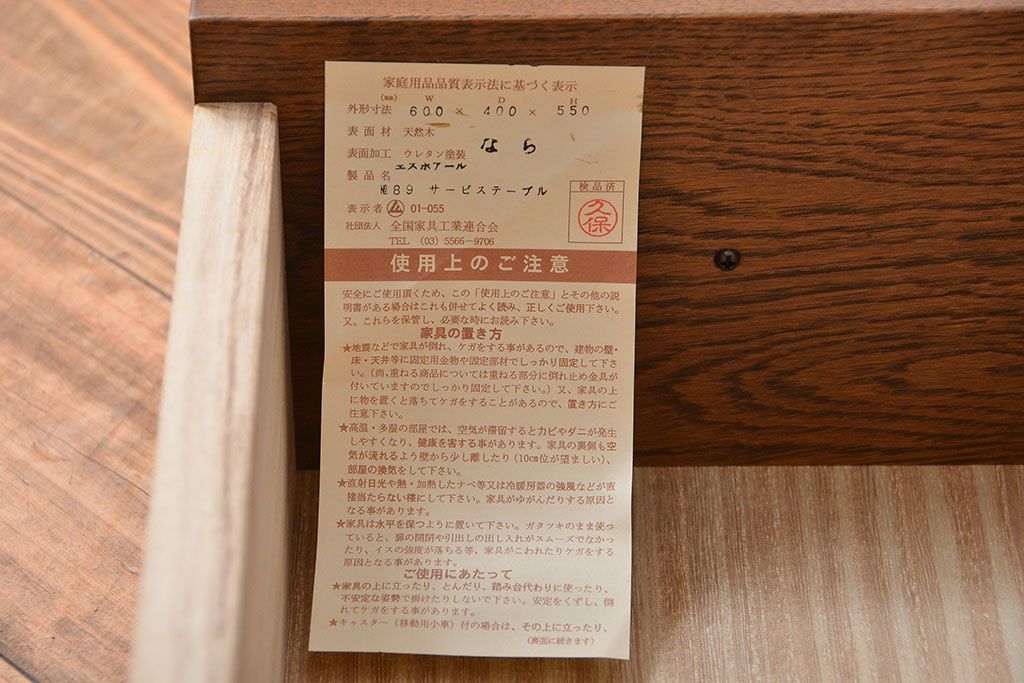 家庭用品品質表示法に基づく表示
(㎜) W D H
外形寸法 600 × 400 × 550
表面材 天然木 なら
表面加工 ウレタン塗装
エスポアール
製品名
№89 サービステーブル
検品済
久保
表示者 01-055
社団法人 全国家具工業連合会
TEL (03) 5566-9706
使用上のご注意
安全にご使用頂くため、この「使用上のご注意」とその他の説
明書がある場合はこれも併せてよく読み、正しくご使用下さい。
又、これらを保管し、必要な時にお読み下さい。
家具の置き方
★地震などで家具が倒れ、ケガをする事があるので、建物の壁・
床・天井等に固定用金物や固定部材でしっかり固定して下さ
い。(尚、重ねる商品については重ねる部分に倒れ止め金具が
付いていますのでしっかり固定して下さい。)又、家具の上
に物を置くと落ちてケガをすることがあるので、置き方にご
注意下さい。
★高温・多湿の部屋では、空気が滞留するとカビやダニが発生
しやすくなり、健康を害する事があります。家具の裏側も空
気が流れるよう壁から少し離したり(10㎝位が望ましい)、
部屋の換気をして下さい。
★直射日光や熱・加熱したナベ等又は冷暖房器の強風などが直
接当たらない様にして下さい。家具がゆがんだりする原因と
なる事があります。
★家具は水平を保つように置いて下さい。ガタツキのまま使っ
ていると、扉の開閉や引出しの出し入れがスムーズでなかっ
たり、イスの強度が落ちる等、家具がこわれたりケガをする
原因となる事があります。
ご使用にあたって
★家具の上に立ったり、とんだり、踏み台代わりに使ったり、
不安定な姿勢で掛けたりしないで下さい。安定をくずし、倒
れてケガをする事があります。
★キャスター(移動用小車)付の場合は、その上に立ったり、
(裏面に続きます)